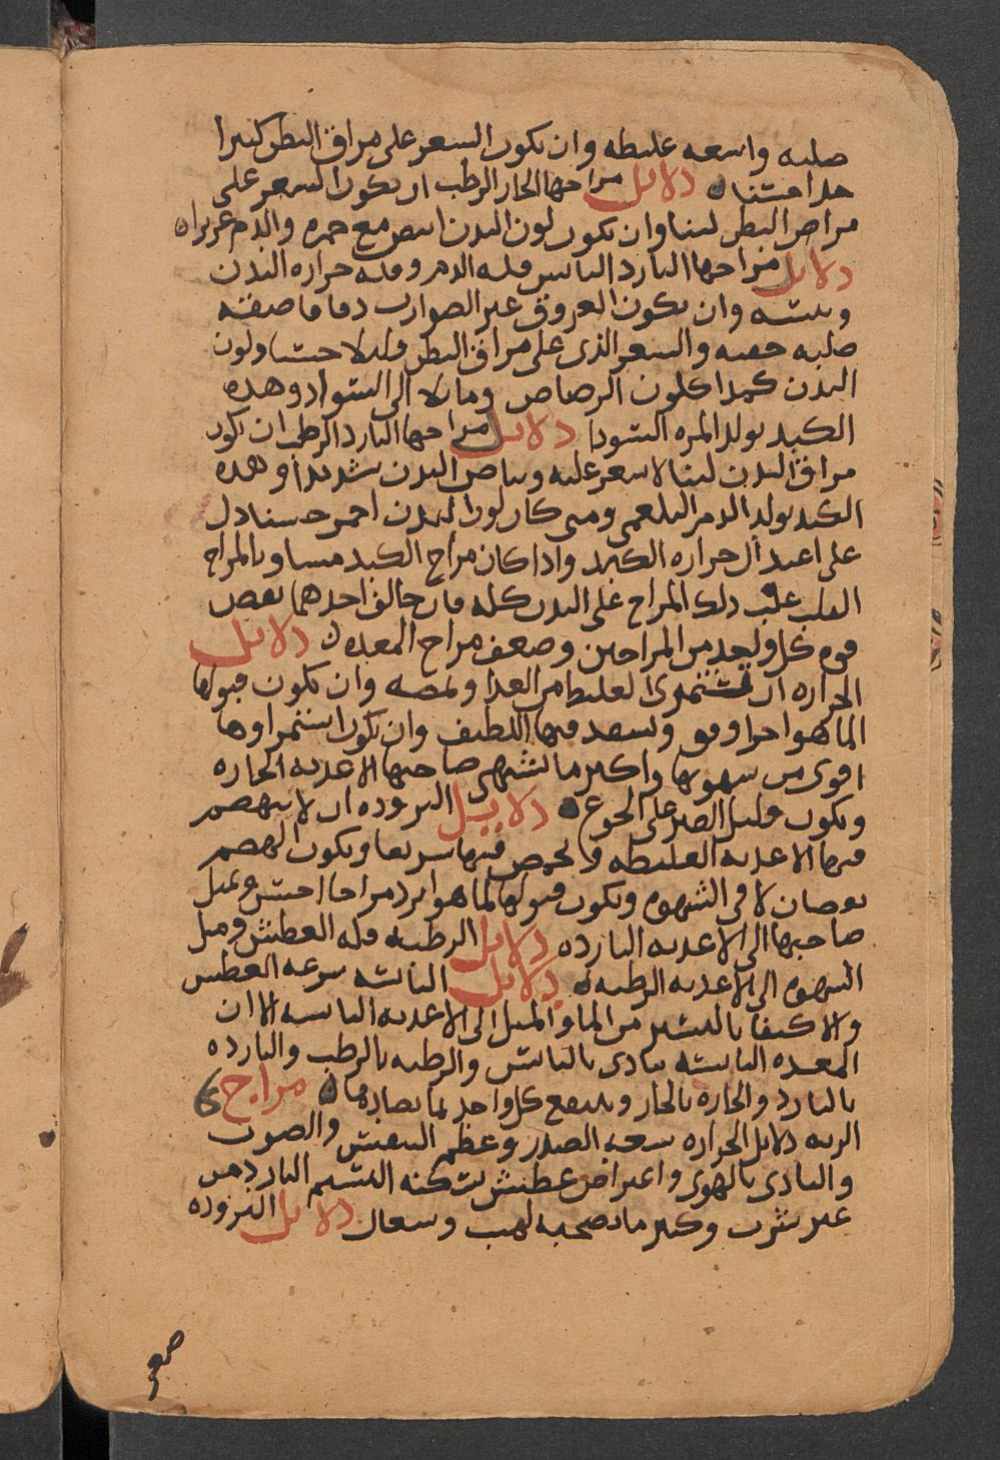 صلبه واسعه غليظه وان يكون الشعر على مراق البطن كثيرا
جدا خشنا دلايل مزاجها الحار الرطب ان يكون الشعر على
مراق البطن لينا وان يكون لون البدن ابيض مع حمره والدم غزيرا
دلايل مزاجها البارد اليابس قله الدم وقله حراره البدن
ويبسه وان يكون العروق غير الضوارب دقاقا ضيقه
صلبه خفيه والشعر الذى على مراق البطن قليلا خشنا ولون
البدن كمدا كلون الرصاص ومايلا الى السواد وهذه
الكبد تولد المره السودا دلايل مزاجها البارد الرطب ان يكون
مراق البدن لينا لا شعر عليه وبياض البدن شديدا وهذه
الكبد تولد الدم البلغمى ومتى كان لون البدن احمر حسنا دل
على اعتدال حراره الكبد واذا كان مزاج الكبد مساويا لمزاج
القلب غلب ذلك المزاج على البدن كله فان خالف احدهما نقص
قوه كل واحد من المزاجين وضعف مزاج المعده دلايل
الحراره ان تستمرى الغليظ من الغذا وتهضمه وان يكون قبولها
لما هو احر اوفق ويفسد فيها اللطيف وان يكون استمراوها
اقوى من شهوتها واكثر ما تشتهى صاحبها الاغذيه الحاره
ويكون قليل الصبر على الجوع دلايل البروده ان لا ينهضم
فيها الاغذيه الغليظه وتحمض فيها سريعا ويكون الهضم
نوصان لا فى الشهوه ويكون قبولها لما هو ابرد مزاجا احسن وتميل
صاحبها الى الاغذيه البارده دلايل الرطبه قله العطش وميل
الشهوه الى الاغذيه الرطبه دلايل اليابسه سرعه العطش
والاكتفا باليسير من الما والميل الى الاغذيه اليابسه الا ان
المعده اليابسه تتاذى باليابس والرطبه بالرطب والبارده
بالبارد والحاره بالحار وينتفع كل واحد بما يضادها مزاج
الريه دلايل الحراره سعه الصدر وعظم التنفس والصوت
والتاذى بالهوى واعتراض عطش يسكنه النسيم البارد من
غير شرب وكثير ما تصحبه لهب وسعال دلايل البروده
صغر